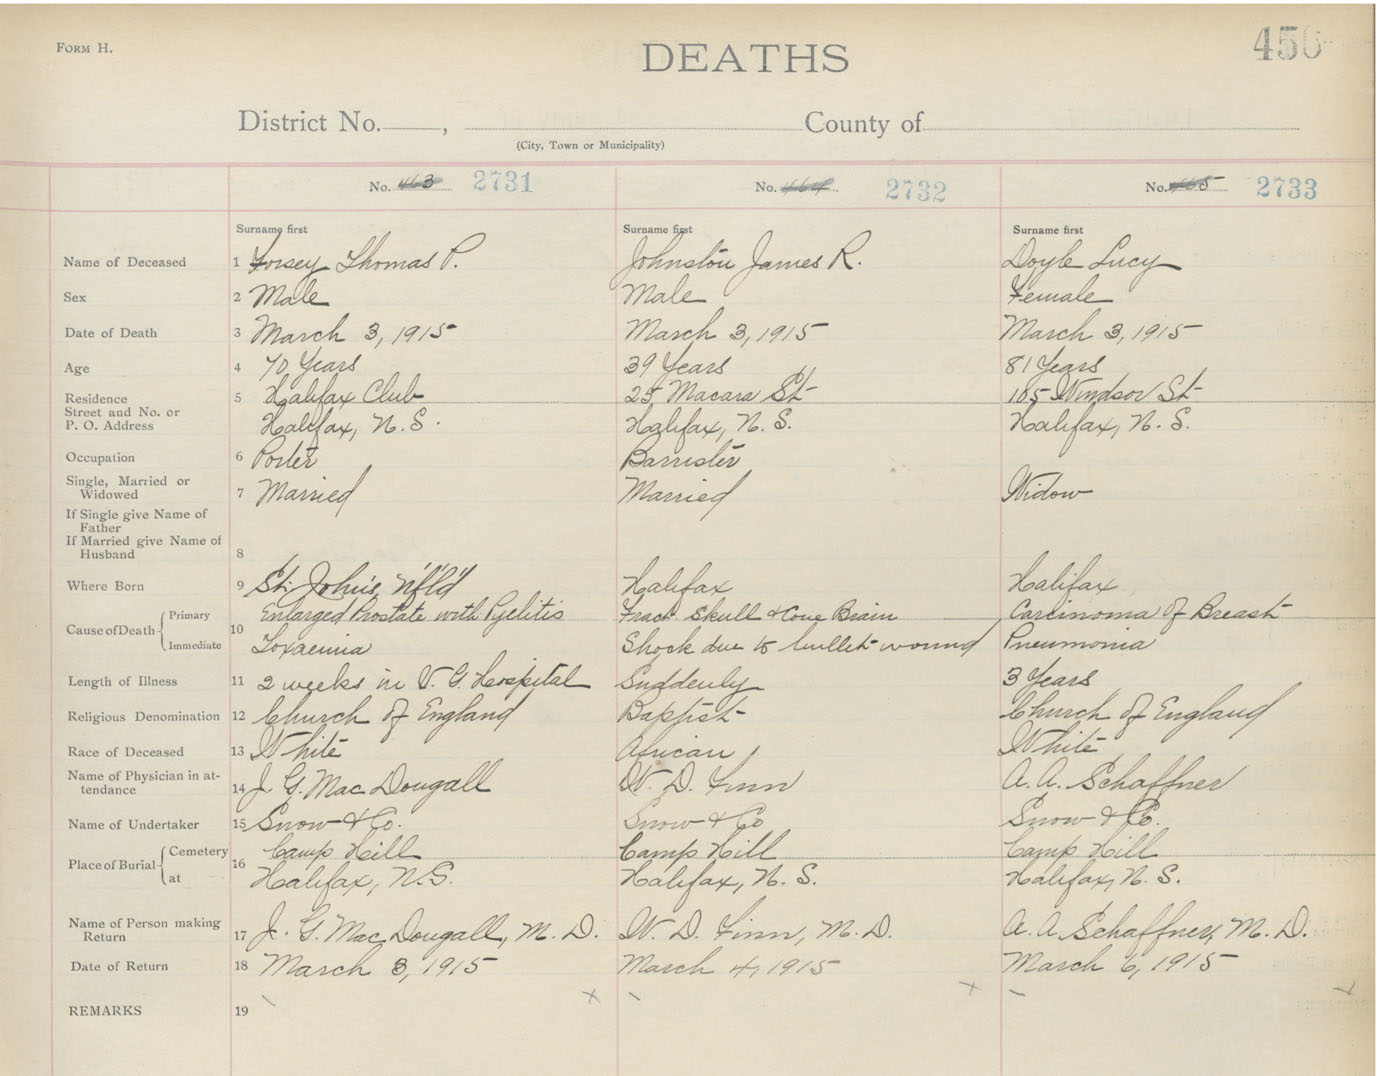 FORM H.
DEATHS
District No. , County of
(City, Town or Municipality)
No. 463 2731 No. 464 2732 No. 465 2733
Surname first Surname first Surname first
Name of Deceased 1 Thomas P. Johnston James R. Doyle Lucy
Sex 2 Male Male Female
Date of Death 3 March 3, 1915 March 3, 1915 March 3, 1915
Age 4 70 Years 39 Years 81 Years
Residence 5 Halifax Club 25 Macara St 185 Windsor St
Street and No. or
P. O. Address Halifax, N.S. Halifax, N.S. Halifax, N.S.
Occupation 6 Porter Barrister
Single, Married or
Widowed 7 Married Married Widow
If Single give Name of
Father
If Married give Name of
Husband 8
Where Born 9 St. John's, N'f'l'd' Halifax Halifax
Cause of Death Primary Enlarged Prostate with Pyelitis Fract. Skull & Brain Carcinoma of Breast
10 Immediate Toxaemia Shock due to bullet wound Pneumonia
Length of Illness 11 2 weeks in V. G. Hospital Suddenly 3 Years
Religious Denomination 12 Church of England Baptist Church of England
Race of Deceased 13 White African White
Name of Physician in at-
tendance 14 J. G. MacDougall W. D. Finn A. A. Schaffner
Name of Undertaker 15 Snow & Co. Snow & Co Snow & Co.
Place of Burial Cemetery 16 Camp Hill Camp Hill Camp Hill
at Halifax, N.S. Halifax, N.S. Halifax, N.S.
Name of Person making
Return 17 J. G. MacDougall, M.D. W. D. Finn, M.D. A. A. Schaffner, M.D.
Date of Return 18 March 3, 1915 March 4, 1915 March 6, 1915
REMARKS 19